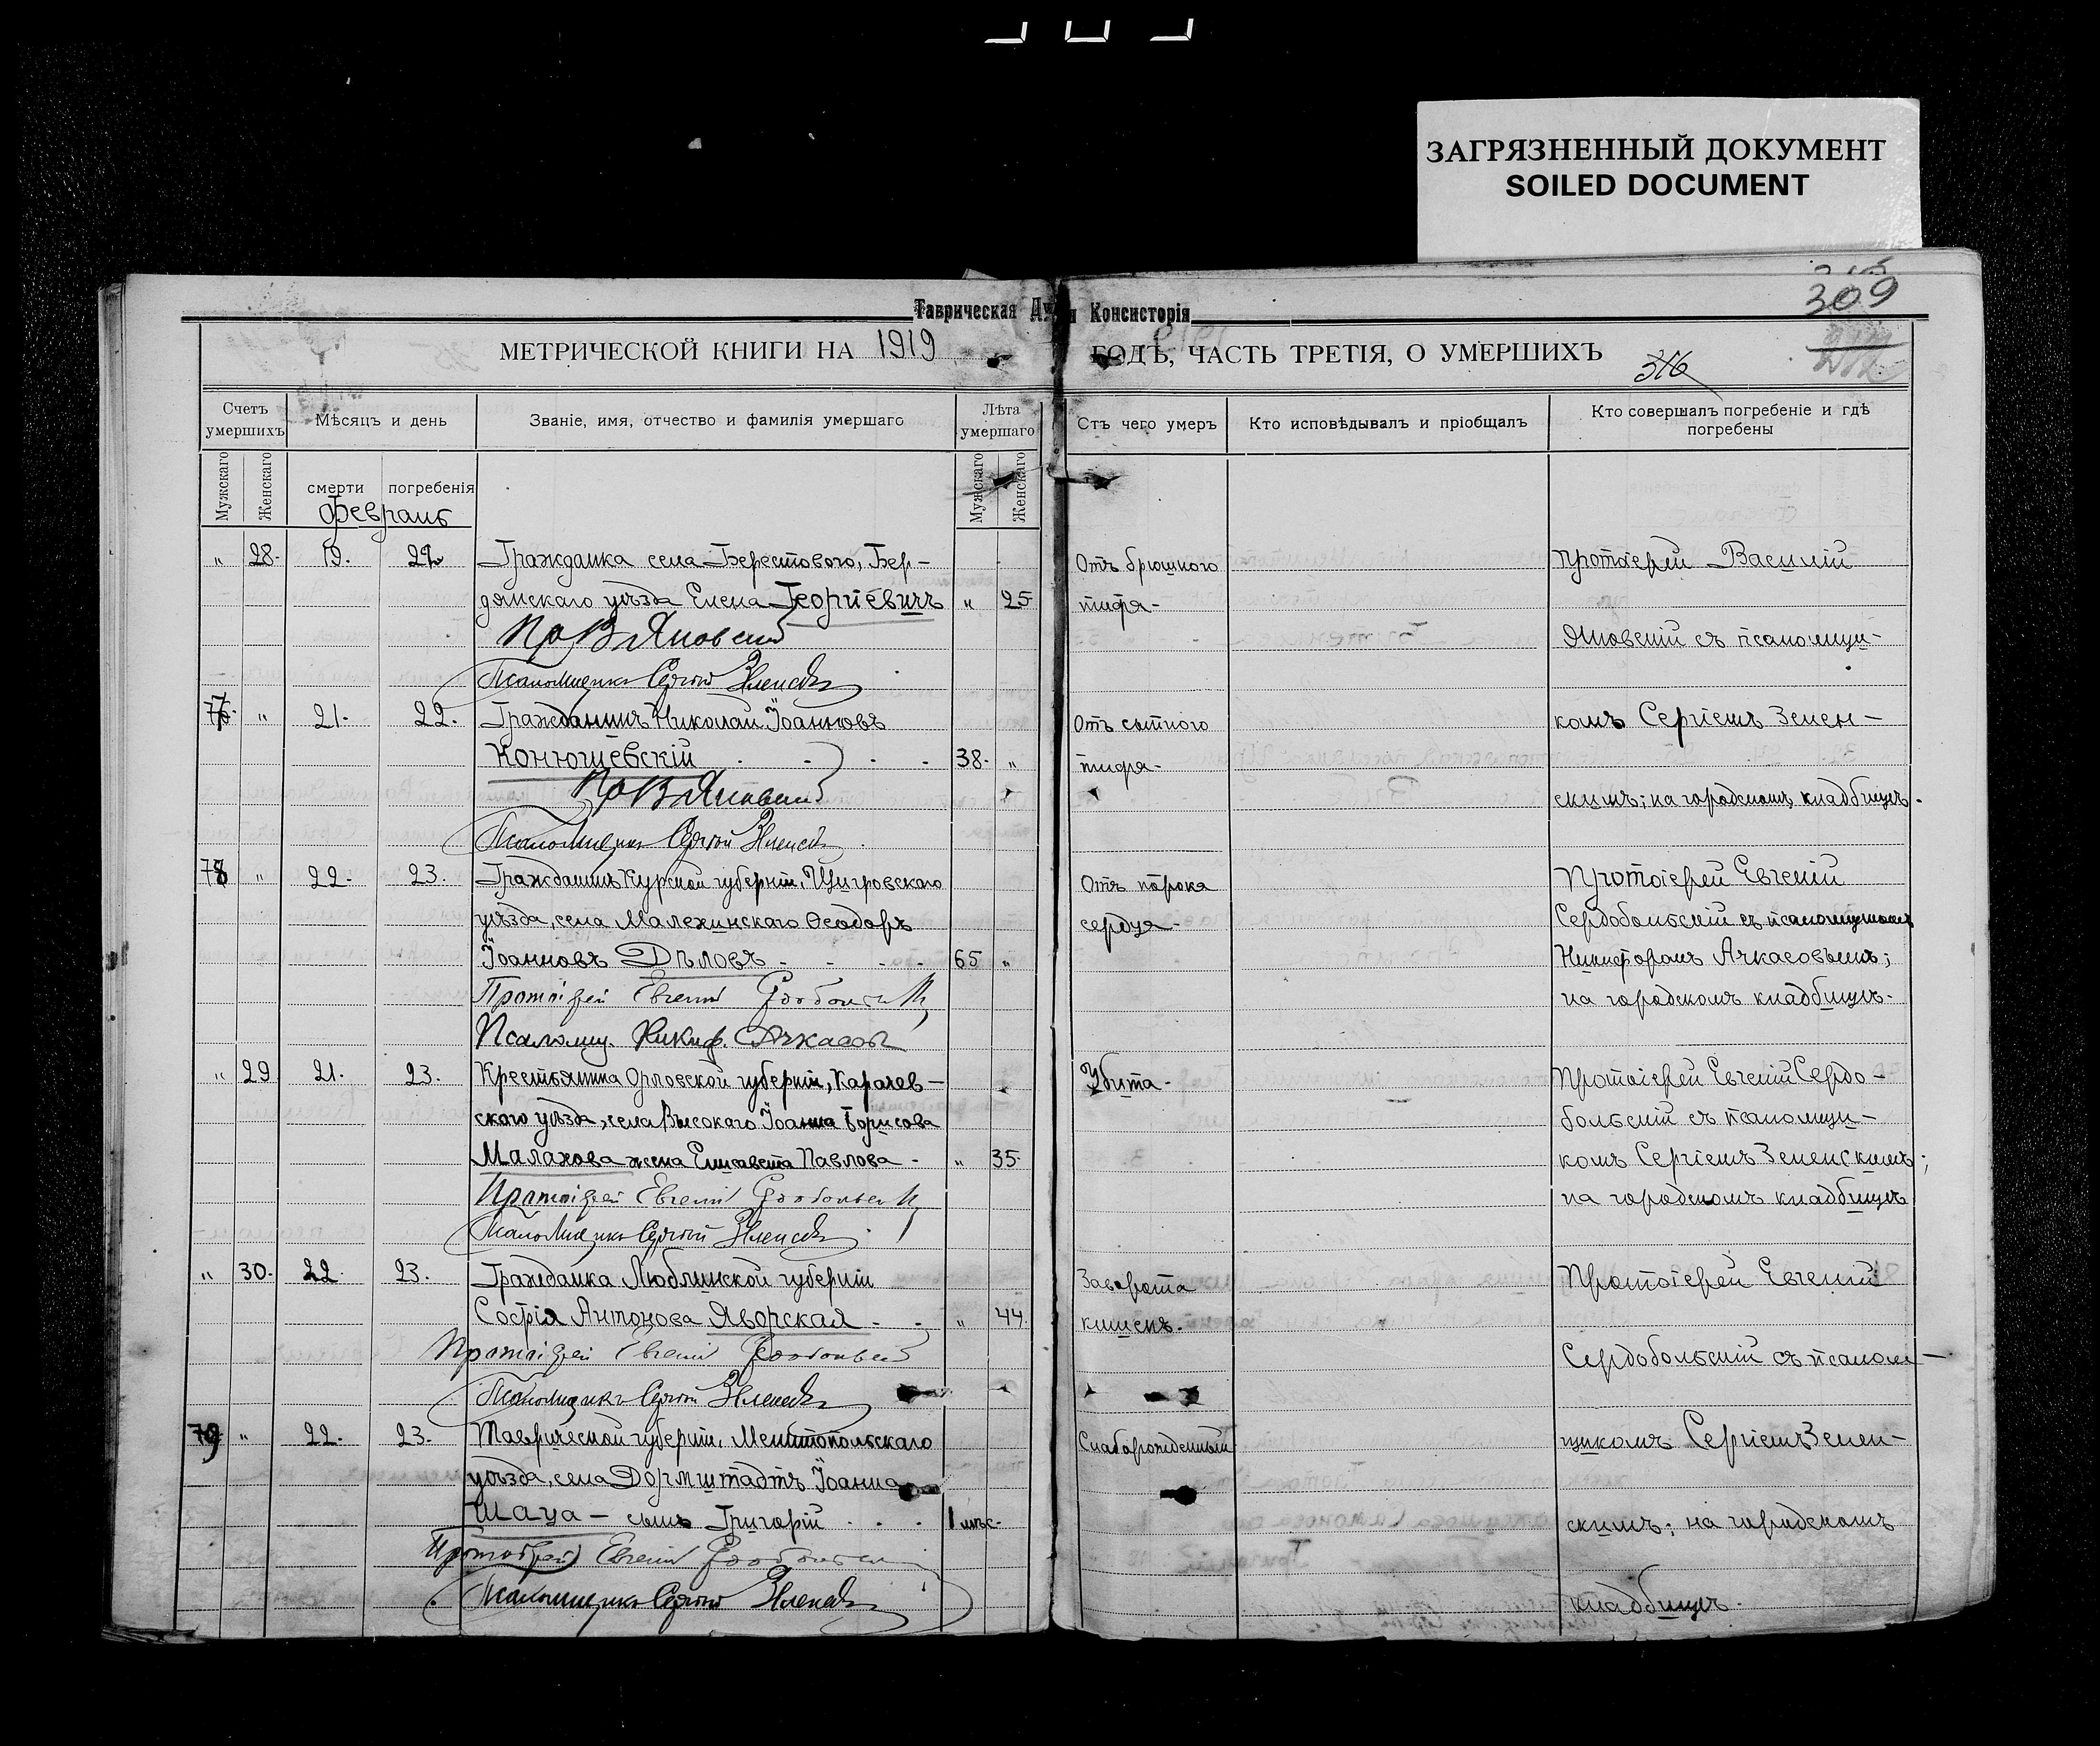 ЗАГРЯЗНЕННЫЙ ДОКУМЕНТ
SOILED DOCUMENT
309
Таврическая Ду Консисторія
МЕТРИЧЕСКОЙ КНИГИ НА 1919 ГОДЪ, ЧАСТЬ ТРЕТІЯ, О УМЕРШИХЪ
316
Счетъ умершихъ
Мѣсяцъ и день
Званіе, имя, отчество и фамилія умершаго
Лѣта умершаго
Отъ чего умеръ
Кто исповѣдывалъ и пріобщалъ
Кто совершалъ погребеніе и гдѣ погребены
Мужскаго
Женскаго
смерти
погребенія
Мужскаго
Женскаго
Февраль
„ 28. 19. 22 Гражданка села Берестового, Бер- Отъ брюшного Протоіерей Василій
дянскаго уѣзда Елена Георгіевичъ „ 25 тифа-
Пр В Яновскій Яновскій съ псаломщи-
Псаломщикъ Сергій Зеленскій
77. „ 21. 22. Гражданинъ Николай Іоанновъ Отъ сыпного комъ Сергіемъ Зелен-
Конюшевскій 38. „ тифа-
Пр В Яновскій скимъ; на городскомъ кладбищѣ.
Псаломщикъ Сергій Зеленскій
78 „ 22. 23. Гражданинъ Курской губерніи, Щигровскаго Отъ порока Протоіерей Евгеній
уѣзда, села Малехинскаго Ѳеодоръ сердца- Сердобольскій съ псаломщикомъ
Іоанновъ Дѣловъ - - - - 65 „ Никифоромъ Ачкасовымъ;
Протоіерей Евгеній Сердобольскій на городскомъ кладбищѣ.
Псаломщ. Никиф. Ачкасовъ
„ 29 21. 23. Крестьянина Орловской губерніи, Карачев- Убита- Протоіерей Евгеній Сердо-
скаго уѣзда, села Высокаго Іоанна Борисова больскій съ псаломщи-
Малахова жена Елисавета Павлова - „ 35 комъ Сергіемъ Зеленскимъ;
Протоіерей Евгеній Сердобольскій на городскомъ кладбищѣ
Псаломщикъ Сергій Зеленскій
„ 30. 22 23. Гражданка Люблинской губерніи Заворота Протоіерей Евгеній
Софія Антонова Яворская - - „ 44 кишекъ.
Протоіерей Евгеній Сердобольскій Сердобольскій съ псалом-
Псаломщикъ Сергій Зеленскій
79 „ 22. 23. Таврической губерніи, Мелитопольскаго Слаборожденный щикомъ Сергіемъ Зелен-
уѣзда, села Дармштадтъ Іоанна
Шаца - сынъ Григорій 1 мѣс. скимъ; на городскомъ
Протоіерей Евгеній Сердобольскій
Псаломщикъ Сергій Зеленскій кладбищѣ.